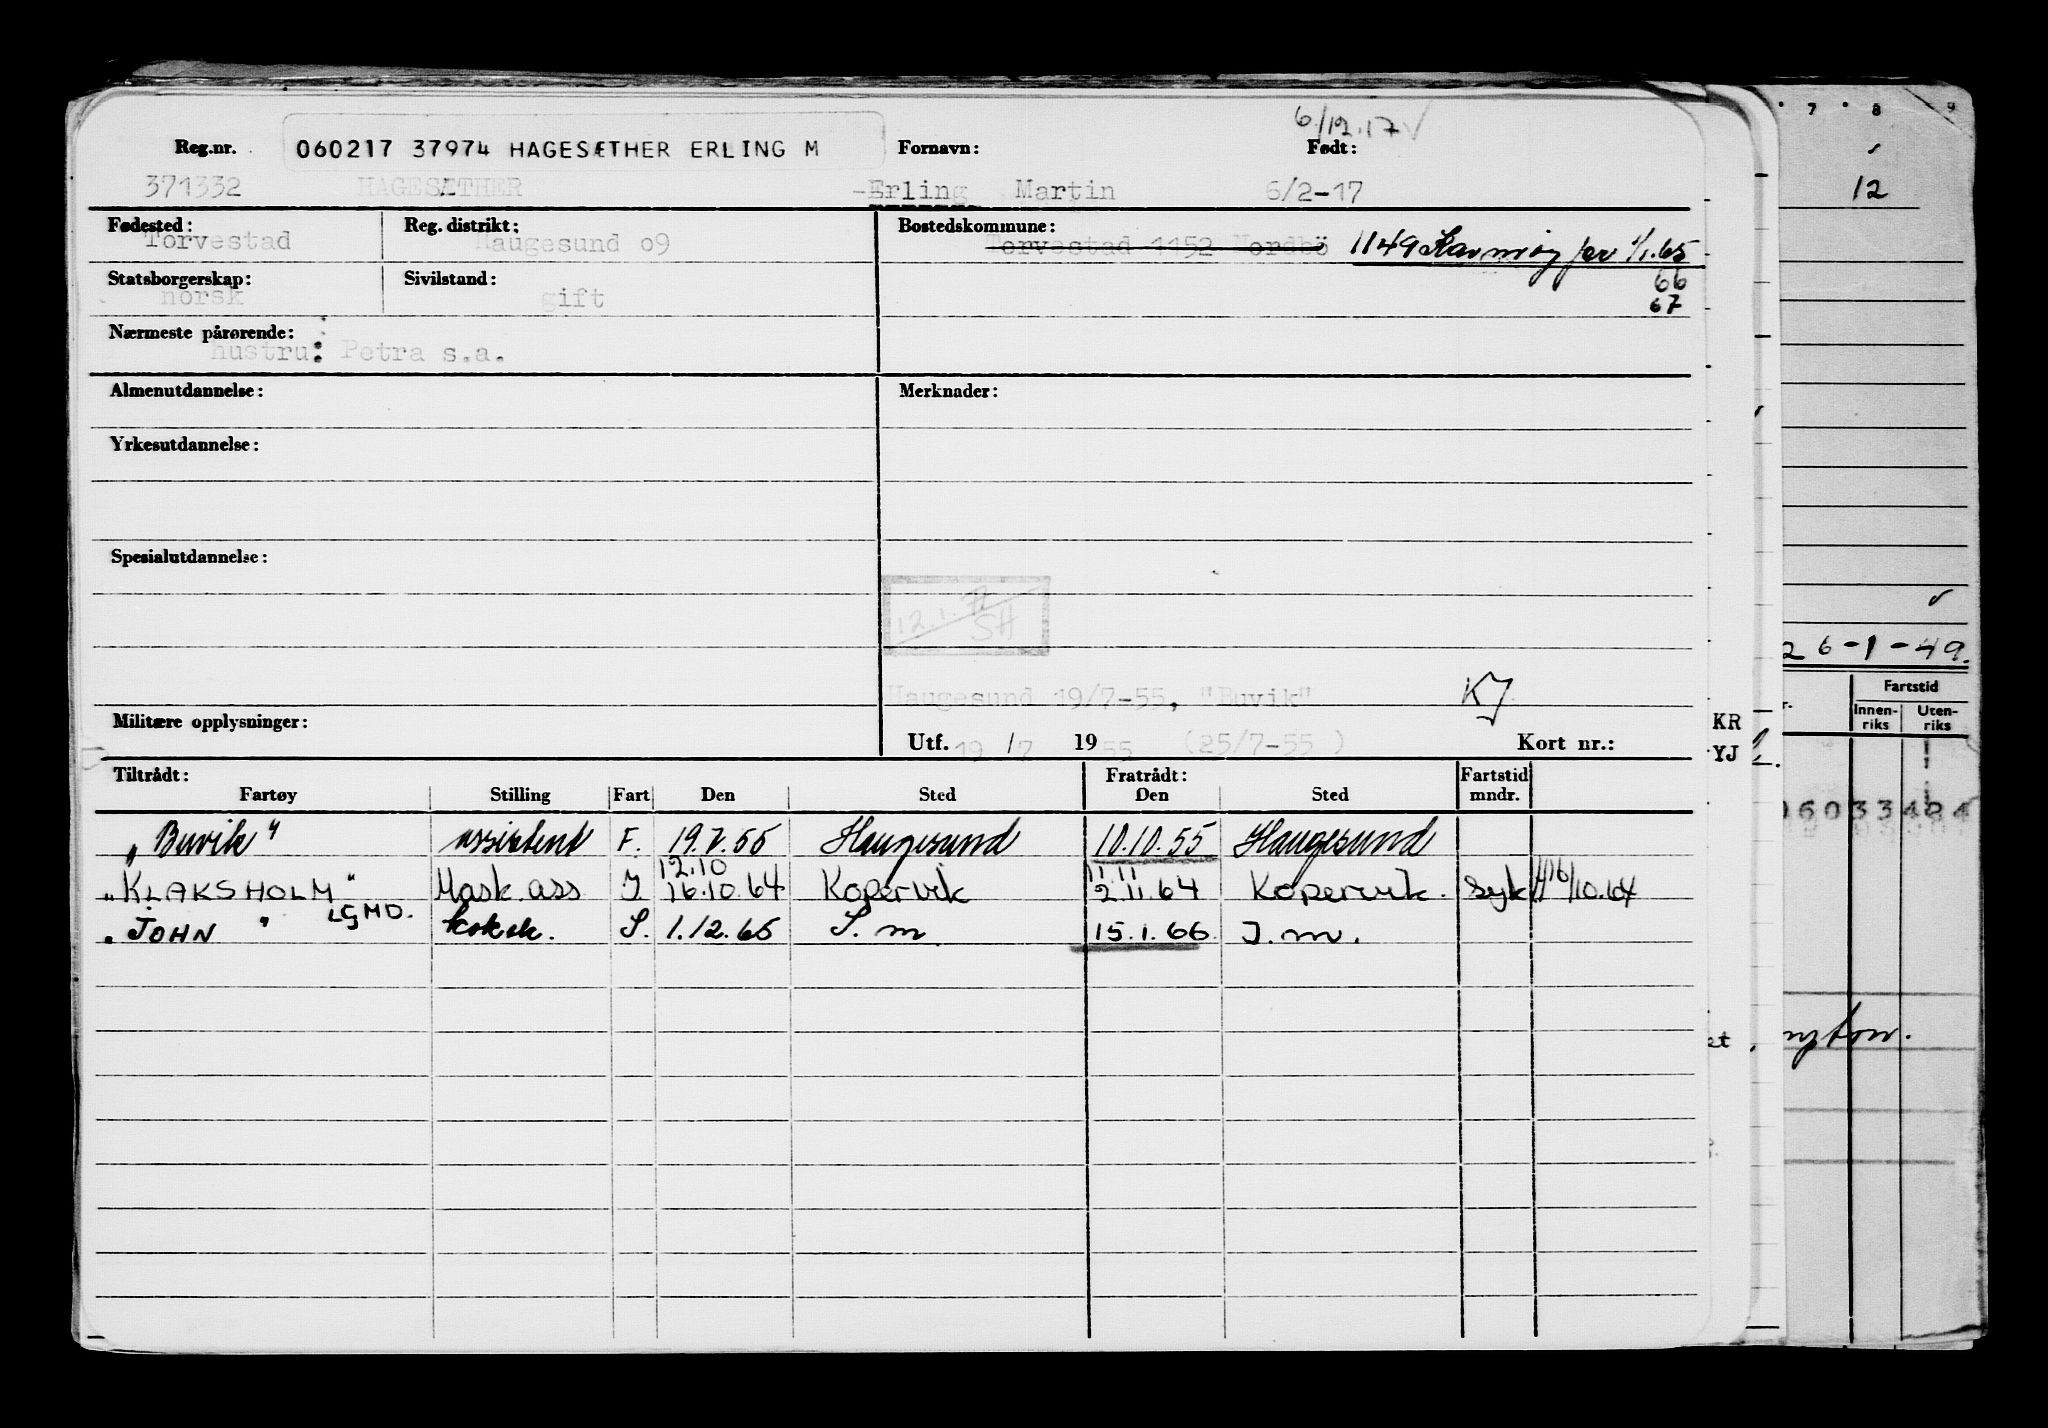 6/12.17 ✓
Reg.nr. 060217 37974 HAGESÆTHER ERLING M Fornavn: Født:
371332 HAGESÆTHER Erling Martin 6/2-17
Fødested: Reg. distrikt: Bostedskommune:
Torvestad Haugesund 09 Torvestad 1152 Nordbö 1149 Karmøy per 1/1.65
Statsborgerskap: Sivilstand: 66
norsk gift 67
Nærmeste pårørende:
hustru: Petra s.a.
Almenutdannelse: Merknader:
Yrkesutdannelse:
Spesialutdannelse:
12.1.
SH
Haugesund 19/7-55, "Buvik" KJ
Militære opplysninger:
Utf. 19/7 1955 (25/7-55) Kort nr.:
Tiltrådt: Fratrådt: Fartstid
Fartøy Stilling Fart Den Sted Den Sted mndr.
"Buvik" assistent F. 19.7.55 Haugesund 10.10.55 Haugesund
12.10 11.11
"KLAKSHOLM" Mask.ass J. 16.10.64 Kopervik 2.11.64 Kopervik. syk 16/10.64
LGMD.
"JOHN" kokk. S. 1.12.65 S.m 15.1.66 J.m.
KR
YJ
7 8 9
12
26-1-49.
Fartstid
Innen-riks Uten-riks
et
ngton.